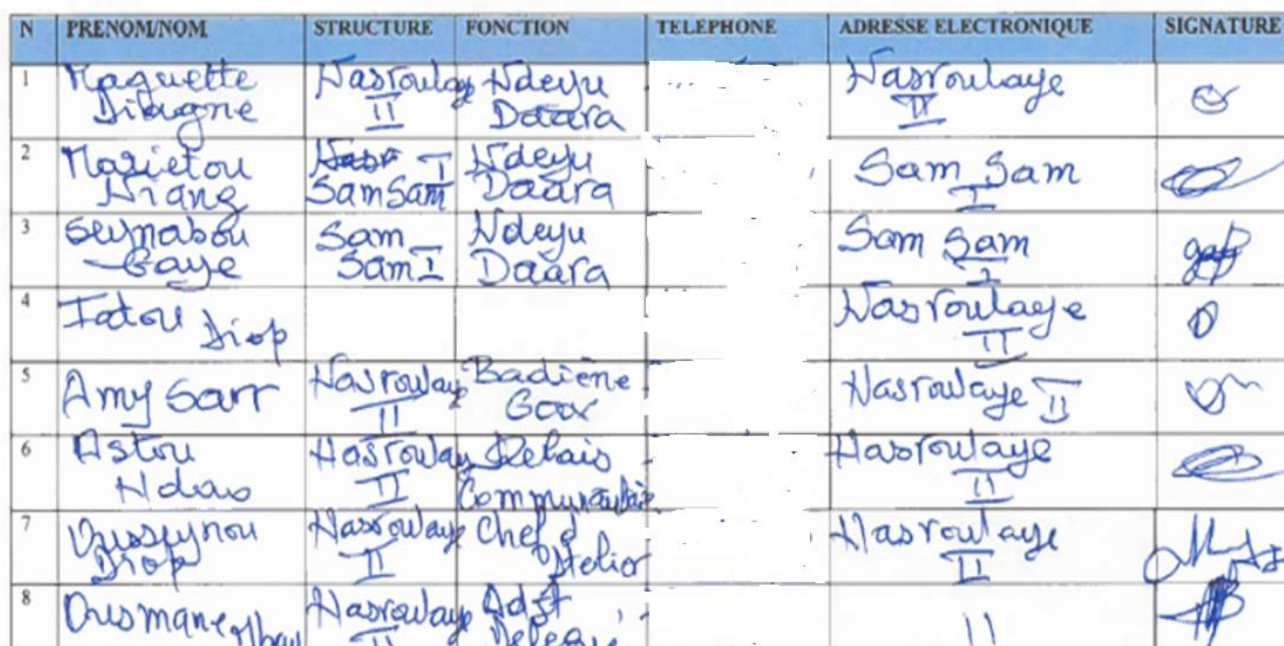 N PRENOM/NOM STRUCTURE FONCTION TELEPHONE ADRESSE ELECTRONIQUE SIGNATURE
1 Maguette Diagne Nasroulaye II Ndeyu Daara Nasroulaye II
2 Marietou Niang Sam Sam I Ndeyu Daara Sam Sam I
3 Seynabou Gaye Sam Sam I Ndeyu Daara Sam Sam I
4 Fatou Diop Nasroulaye II
5 Amy Sarr Nasroulaye II Badiène Gox Nasroulaye II
6 Astou Ndao Nasroulaye II Relais Communautaire Nasroulaye II
7 Ousseynou Diop Nasroulaye II Chef d'Atelier Nasroulaye II
8 Ousmane Mbay Nasroulaye II Adjt Délégué II